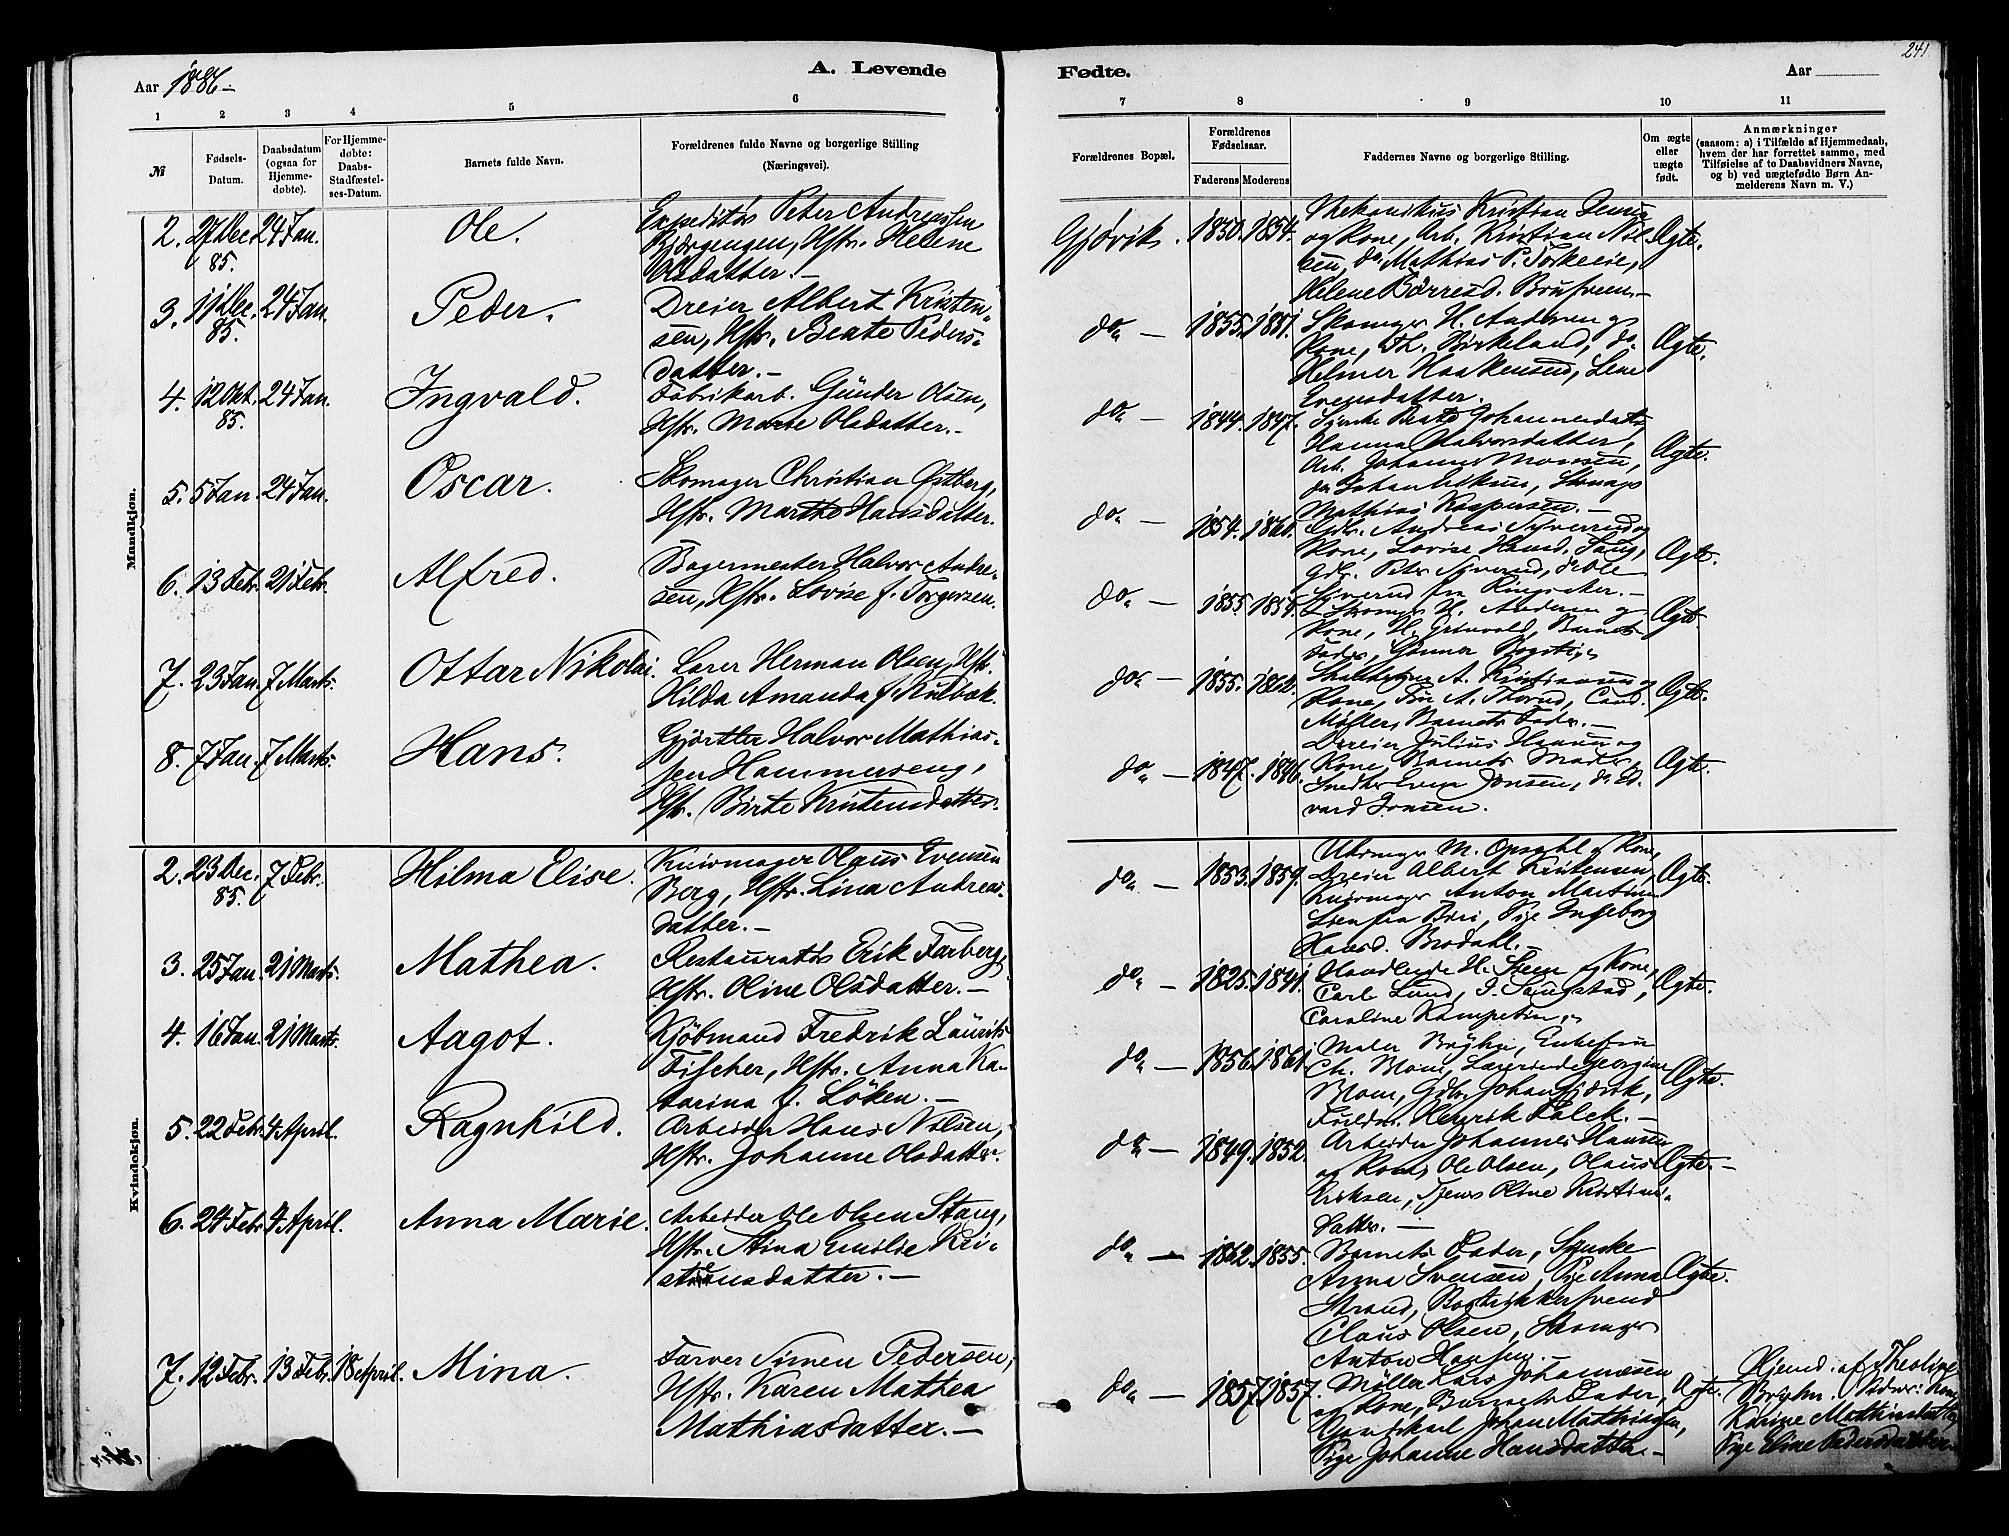 241
Aar 1886.
A. Levende
Fødte.
Aar
1 2 3 4 5 6 7 8 9 10 11
№
Fødsels-
Datum.
Daabsdatum
(ogsaa for
Hjemme-
døbte).
For Hjemme-
døbte:
Daabs-
Stadfæstel-
ses-Datum.
Barnets fulde Navn.
Forældrenes fulde Navne og borgerlige Stilling
(Næringsvei).
Forældrenes Bopæl.
Forældrenes
Fødselsaar.
Faderens Moderens
Faddernes Navne og borgerlige Stilling.
Om ægte
eller
uægte
født.
Anmærkninger
(saasom: a) i Tilfælde af Hjemmedaab,
hvem der har forrettet samme, med
Tilføielse af to Daabsvidners Navne,
og b) ved uægtefødte Børn An-
melderens Navn m. V.)
Mandkjøn.
2. 27 Dec. 85. 24 Jan. Ole.
Expeditør Peter Andreassen
Bjørgengen, Hstr. Helene
Olsdatter.—
Gjøvik. 1850. 1854.
Mekanikus Kristian Jensen
og Kone, Arb. Kristian Niel
sen, do Mathias P.
Helene Børresd.
Ægte.
3. 11 Dec. 85. 24 Jan. Peder.
Dreier Albert Kristen-
sen, Hstr. Beate Peders-
datter.—
do — 1855. 1851.
Skomager H. Andersen og
Kone, Th. Birkeland, do
Helmer Haakensend, Lene
Evensdatter.
Ægte.
4. 12 Okt. 85. 24 Jan. Ingvald.
Fabrikarb. Günder Olsen,
Hstr. Marte Olsdatter.—
do — 1844. 1847.
Beate Johannesdatter,
Hanna Halvorsdatter,
Arb. Johannes Monsen,
do Johan
Mathias Kaspersen.—
Ægte.
5. 5 Jan. 24 Jan. Oscar.
Skomager Christian Østberg,
Hstr. Marthe Hansdatter.
do — 1854. 1860.
Gdbr. Andreas Syverud og
Kone, Lovise Hansd. Stang,
Gdbr. Peter Syverud, do Ole
Syverud fra Ringsaker.—
Ægte.
6. 13 Febr. 21 Febr. Alfred.
Bagermester Halvor Andre-
sen, Hstr. Lovise f. Torgersen.
do — 1855. 1854.
Skomager H. Andersen og
Kone, H. Grünvold, Barnets
Fader, Gunnar
Ægte.
7. 23 Jan. 7 Marts. Ottar Nikolai.
Lærer Herman Olsen, Hstr.
Hilda Amanda f. Kulbæk.
do — 1855. 1862.
A. Kristiansen og
Kone, A. Cand.
Møller, Barnets Fader.—
Ægte.
8. 7 Jan. 7 Marts. Hans.
Gjørtler Halvor Mathias-
sen Hammerseng,
Hstr. Birte Kristensdatter.
do — 1847. 1846.
Dreier Julius Hansen og
Kone, Barnets Moder,
Jonsen, do Ed
vard Jonsen.
Ægte.
Kvindekjøn.
2. 23 Dec. 85. 7 Febr. Hilma Elise.
Knivmager Olaus Evensen
Berg, Hstr. Lina Andreas-
datter.—
do — 1853. 1859.
Uhrmager M. Opsahl og Kone,
Dreier Albert Kristensen,
Knivmager Anton Martinsen
Lien fra Biri, Pige Ingeborg
Hansd. Brodahl.—
Ægte.
3. 25 Jan. 21 Marts. Mathea.
Restauratør Erik Farberg,
Hstr. Oline Olsdatter.—
do — 1825. 1841.
Handlende H. Steen og Kone,
Carl Lund, J. Sangstad,
Caroline
Ægte.
4. 16 Jan. 21 Marts. Aagot.
Kjøbmand Fredrik Laurits
Fischer, Hstr. Anna Ka-
tarina f. Løken.—
do — 1856. 1861.
Maler Bryhn, Enkefru
Ch. Blom, Lærerinde Georgine
Blom, Gdbr. Johan Gjøvik,
Fuldm. Henrik Falck.—
Ægte.
5. 22 Febr. 4 April. Ragnhild.
Arbeider Hans Nilsen,
Hstr. Johanne Olsdatter.
do — 1849. 1852.
Arbeider Johannes Hansen
og Kone, Ole Olsen, Olaus
Eriksen, Tjener Oline Kristians-
datter.—
Ægte.—
6. 24 Febr. 4 April. Anna Marie.
Arbeider Ole Olsen Stang,
Hstr. Stina Emilie Kri-
stiansdatter.—
do — 1862. 1855.
Barnets Fader,
Anna Svensen, Pige Anna
Strand, Bogtrykkersvend
Claus Olsen, Skomager
Anton Hansen.—
Ægte.
7. 12 Febr. 13 Febr. 18 April. Mina.
Farver Simen Pedersen,
Hstr. Karen Mathea
Mathiasdatter.—
do — 1857. 1857.
Møller Lars Johannesen
og Kone, Barnets Fader,
Ungkarl Johan Mathiasen,
Pige Johanne Hansdatter.—
Ægte.
Hjemd. af Theoline
Bryhn. Vidner: Kone
Karine Mathiasdatter,
Pige Eline Pedersdatter.